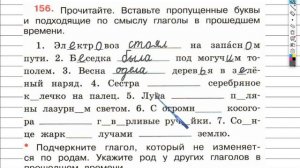 156. Прочитайте. Вставьте пропущенные буквы
и подходящие по смыслу глаголы в прошедшем
времени.
1. Электровоз стоял на запасном
пути. 2. Беседка была под могучим то-
полем. 3. Весна одела деревья в зе-
лёный наряд. 4. Сестра серебряное
к..лечко на палец. 5. Луна п..ля-
ны лазурн..м светом. 6. С огромн.. косого-
ра г..в..рливые ручейки. 7. Со-
нце жарк.. лучами землю.
• Подчеркните глагол, который не изменяет-
ся по родам. Укажите род у других глаголов в